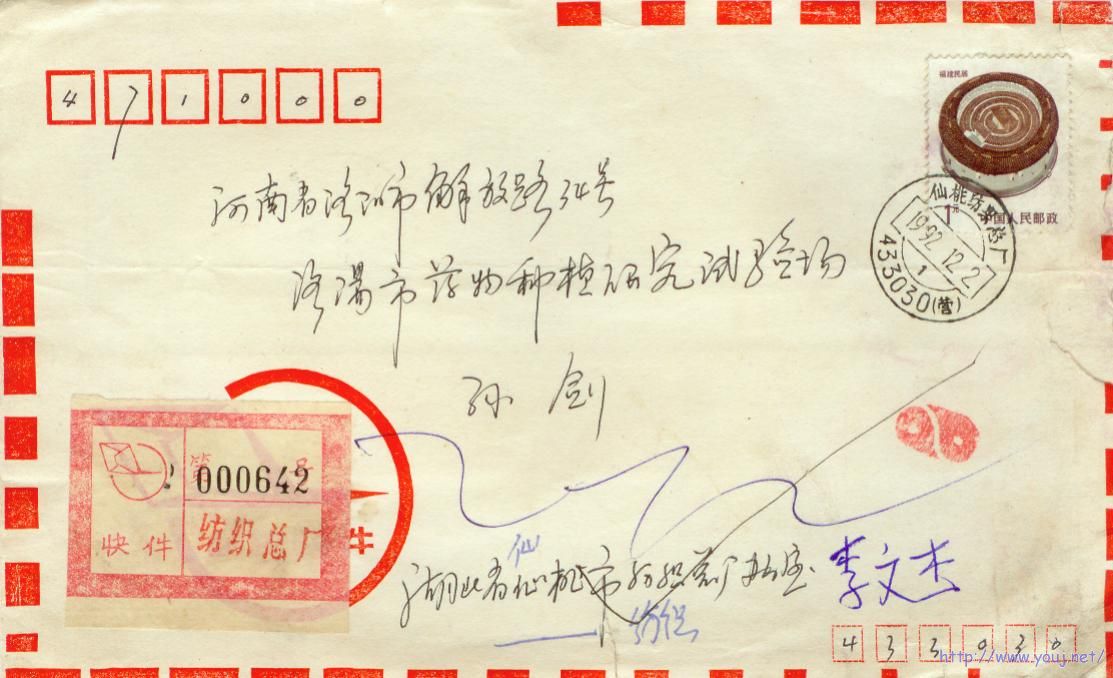 471000
福建民居
1元
中国人民邮政
仙桃纺织总厂
1992.12.2
1
433030(营)
河南省洛阳市解放路34号
洛阳市药物种植研究试验场
孙剑
第 号
000642
快件
纺织总厂
件
仙
湖北省仙桃市纺织总厂办公室
李文杰
纺织
433030
http://www.youj.net/